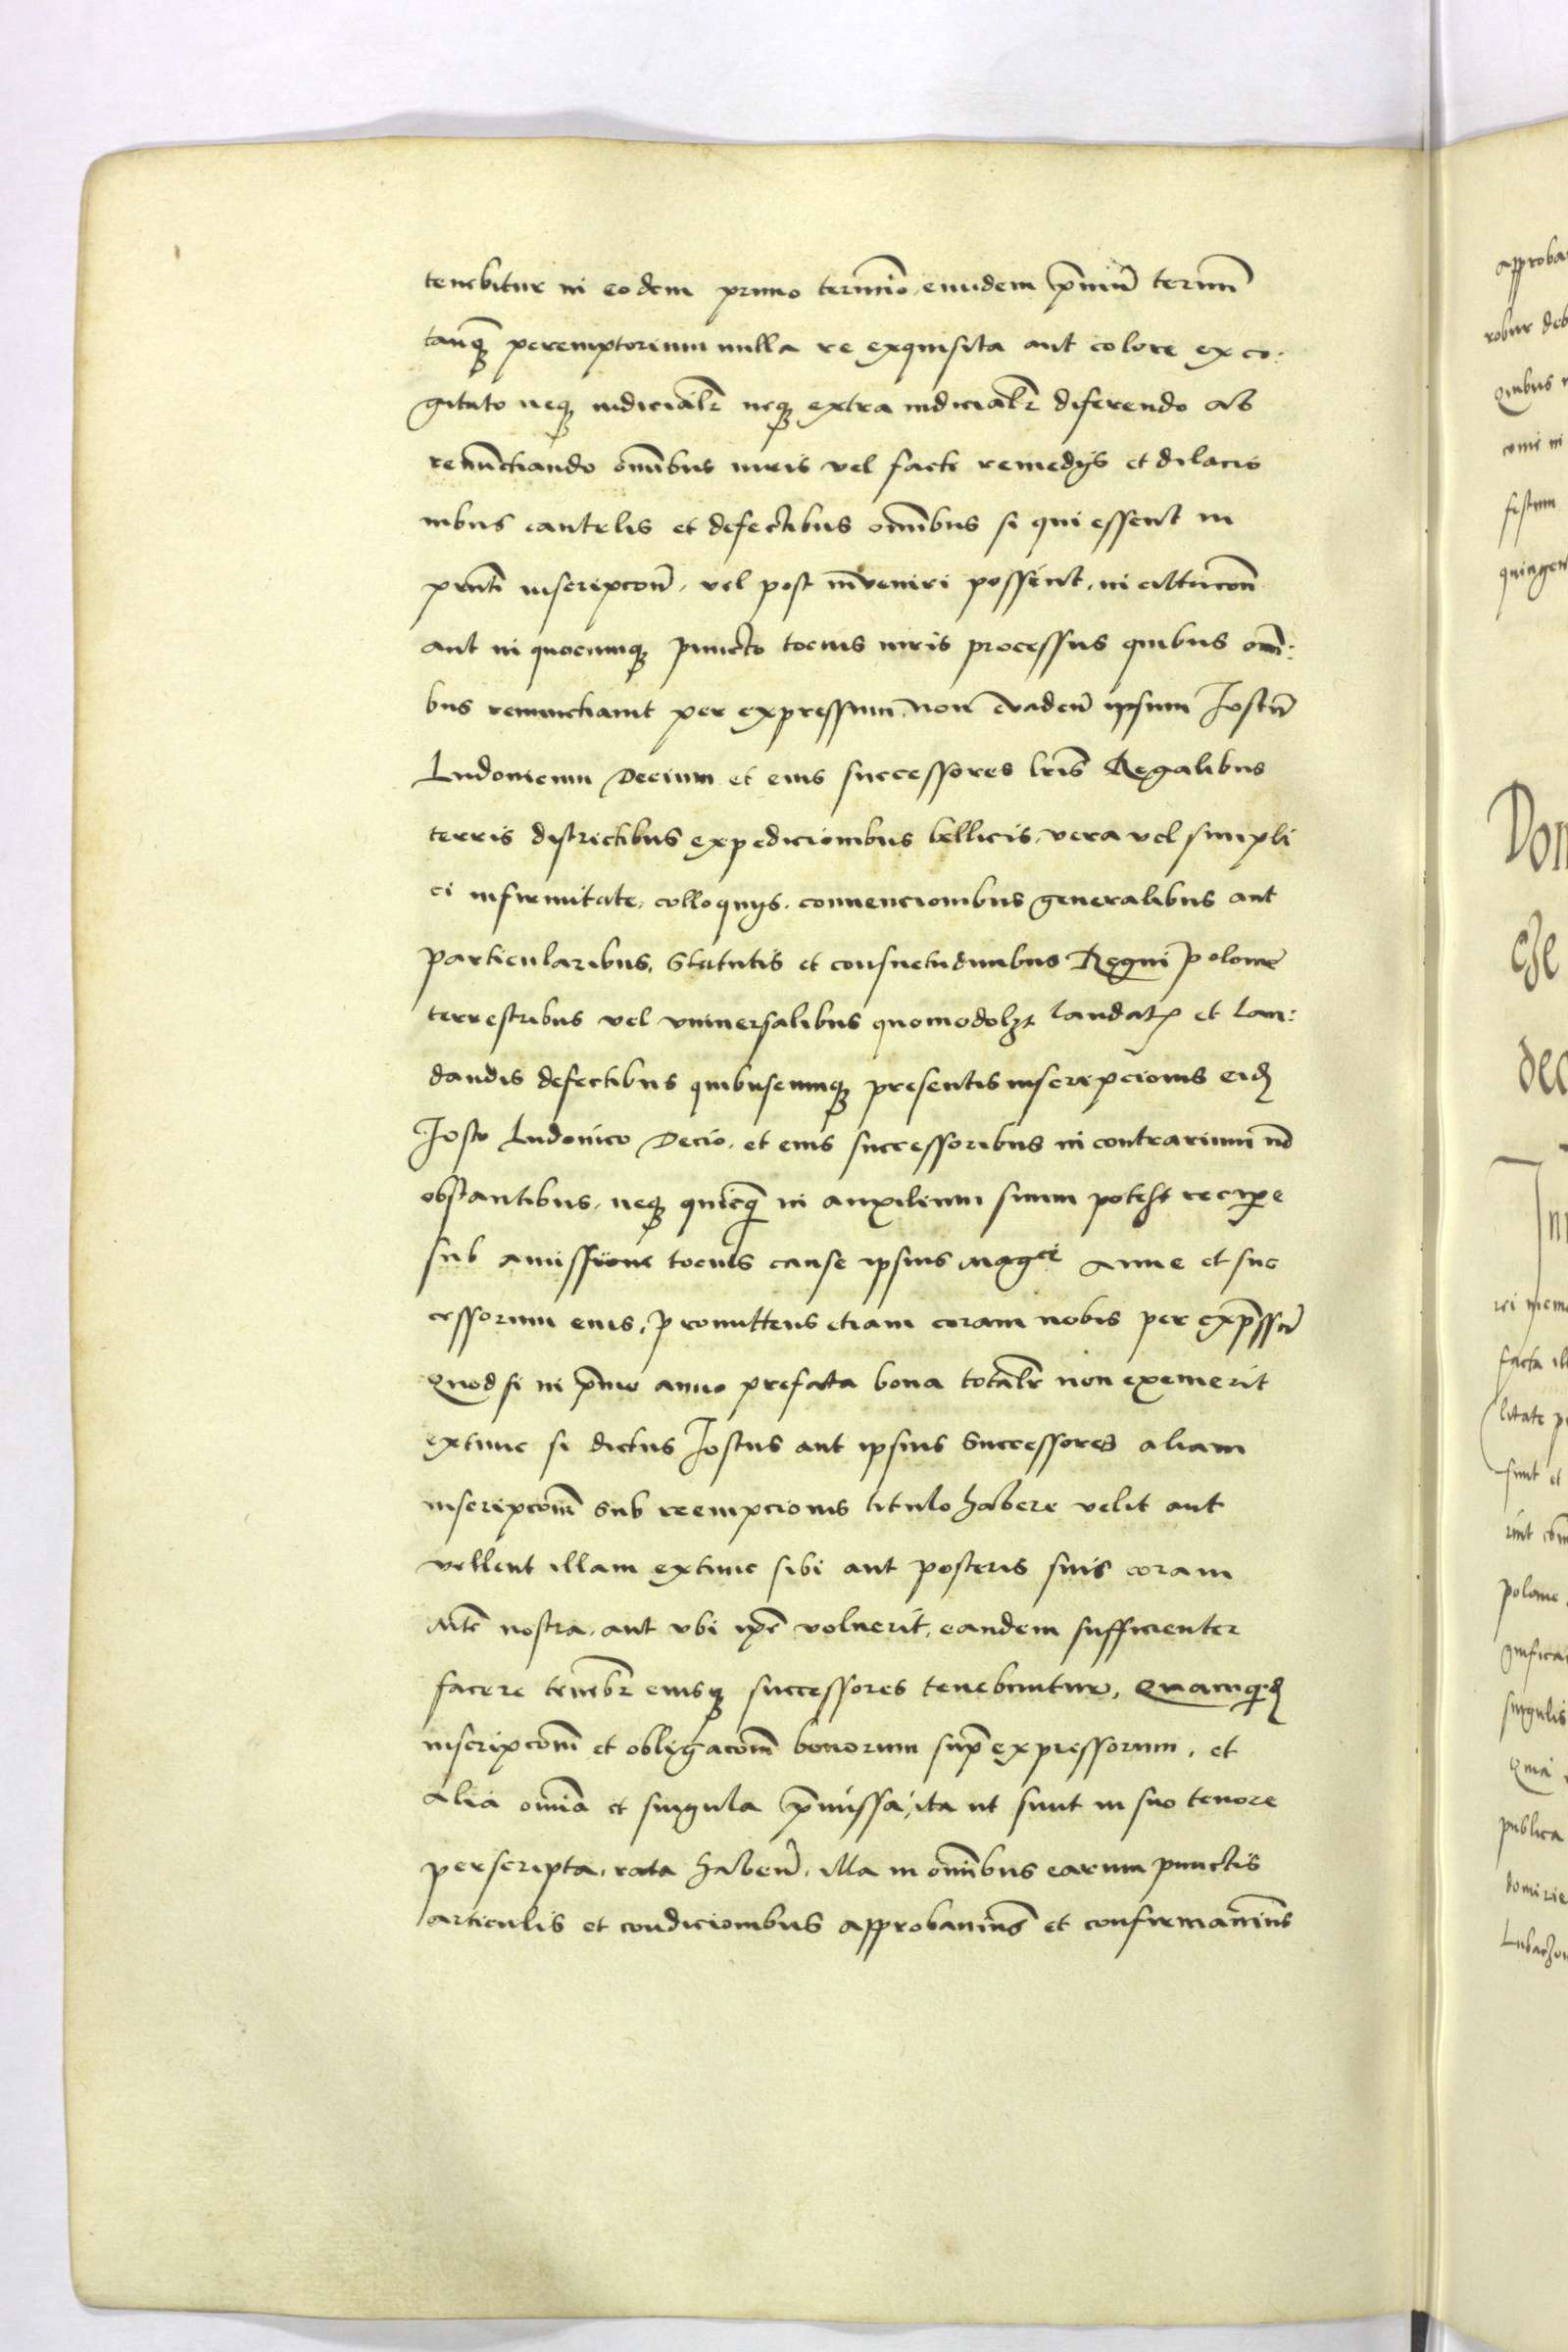 tenebitur in eodem primo termino, eundem p̄mū termin̄
tanq̄ꝫ peremptorium nulla re exquisita aut colore exco:
gitato neqꝫ iudicialr̄ neqꝫ extra iudicialr̄ diferendo ac
renūctiando om̄ibus iuris vel facti remedys et dilacio
nibus cautelis et defectibus om̄ibus si qui essent in
pn̄ti inscripcōn̄, vel post īveniri possent, in citacōn̄
aut in quocumqꝫ puncto tocius iuris processus quibus om̄:
bus renunctiavit per expressum, non evadeñ ipsum Jostū
Ludovicum Decium et eius successores lr̄is Regalibus
terris districtibus expedicionibus bellicis, vera vel simpli
ci infirmitate, colloquys, convencionibus generalibus aut
particularibus, Statutis et consuetudinibus Regni Polonie
terrestribus vel vniversalibus quomodolꝫt laudatꝭ et lau:
dandis defectibus quibuscumqꝫ presentis inscripcionis eidꝫ
Josto Ludovico Decio, et eius successoribus in contrarium nō
obstantibus, neqꝫ quicq̄ in auxilium suum potest reciꝑe
sub amissione tocius cause ipsius Magce Anne et suc
cessorum eius, promittens etiam coram nobis per exp̄ssū
Quod si in p̄mo anno prefata bona totalr̄ non exemerit
extunc si dictus Jostus aut ipsius Successores aliam
inscripcōn̄ sub reempcionis titulo habere velit aut
vellent illam extunc sibi aut posteris suis coram
Mte nostra, aut vbi ip̄e voluerit, eandem sufficienter
facere tenebr̄ eiusqꝫ successores tenebuntur, Quamq̄dꝫ
inscripcōn̄ et obligacōn̄ bonorum sup̄expressorum, et
alia om̄ia et singula p̄missa, ita ut sunt in suo tenore
perscripta, rata habeñ, illa in om̄ibus earum punctis
articulis et condicionibus approbavim̄s et confirmavim̄s
approba
robur deb
quibus
festum
quingen
Don
cze
dec
rei mem
facta ill
litate p
sunt et
polonie
singulis
publica